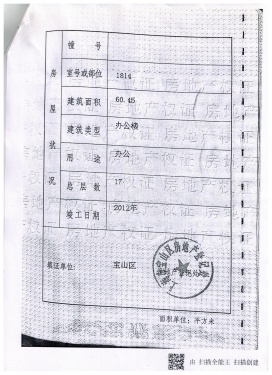 幢 号
房屋状况
室号或部位 1814
建筑面积 60.45
建筑类型 办公楼
用 途 办公
总层数 17
竣工日期 2012年
填证单位: 宝山区
面积单位: 平方米
由 扫描全能王 扫描创建